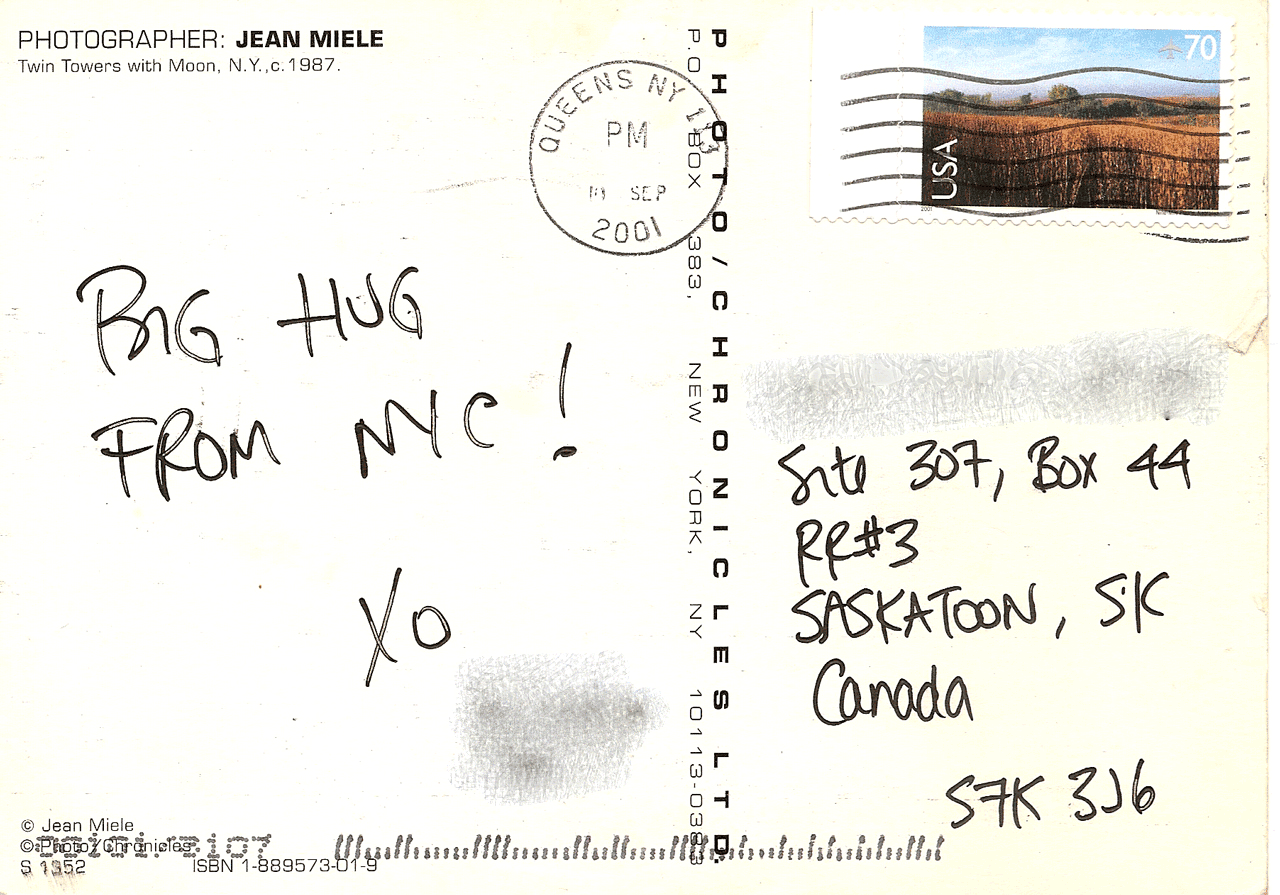 PHOTOGRAPHER: JEAN MIELE
Twin Towers with Moon, N.Y.,c.1987.
BIG HUG
FROM NYC!
XO
© Jean Miele
© Photo / Chronicles
S 1352
ISBN 1-889573-01-9
PHOTO/CHRONICLES LTD.
P.O. BOX 383, NEW YORK, NY 10113-0383
QUEENS NY 113
PM
SEP
2001
70
USA
2001
Site 307, Box 44
RR#3
SASKATOON, SK
Canada
S7K 3J6